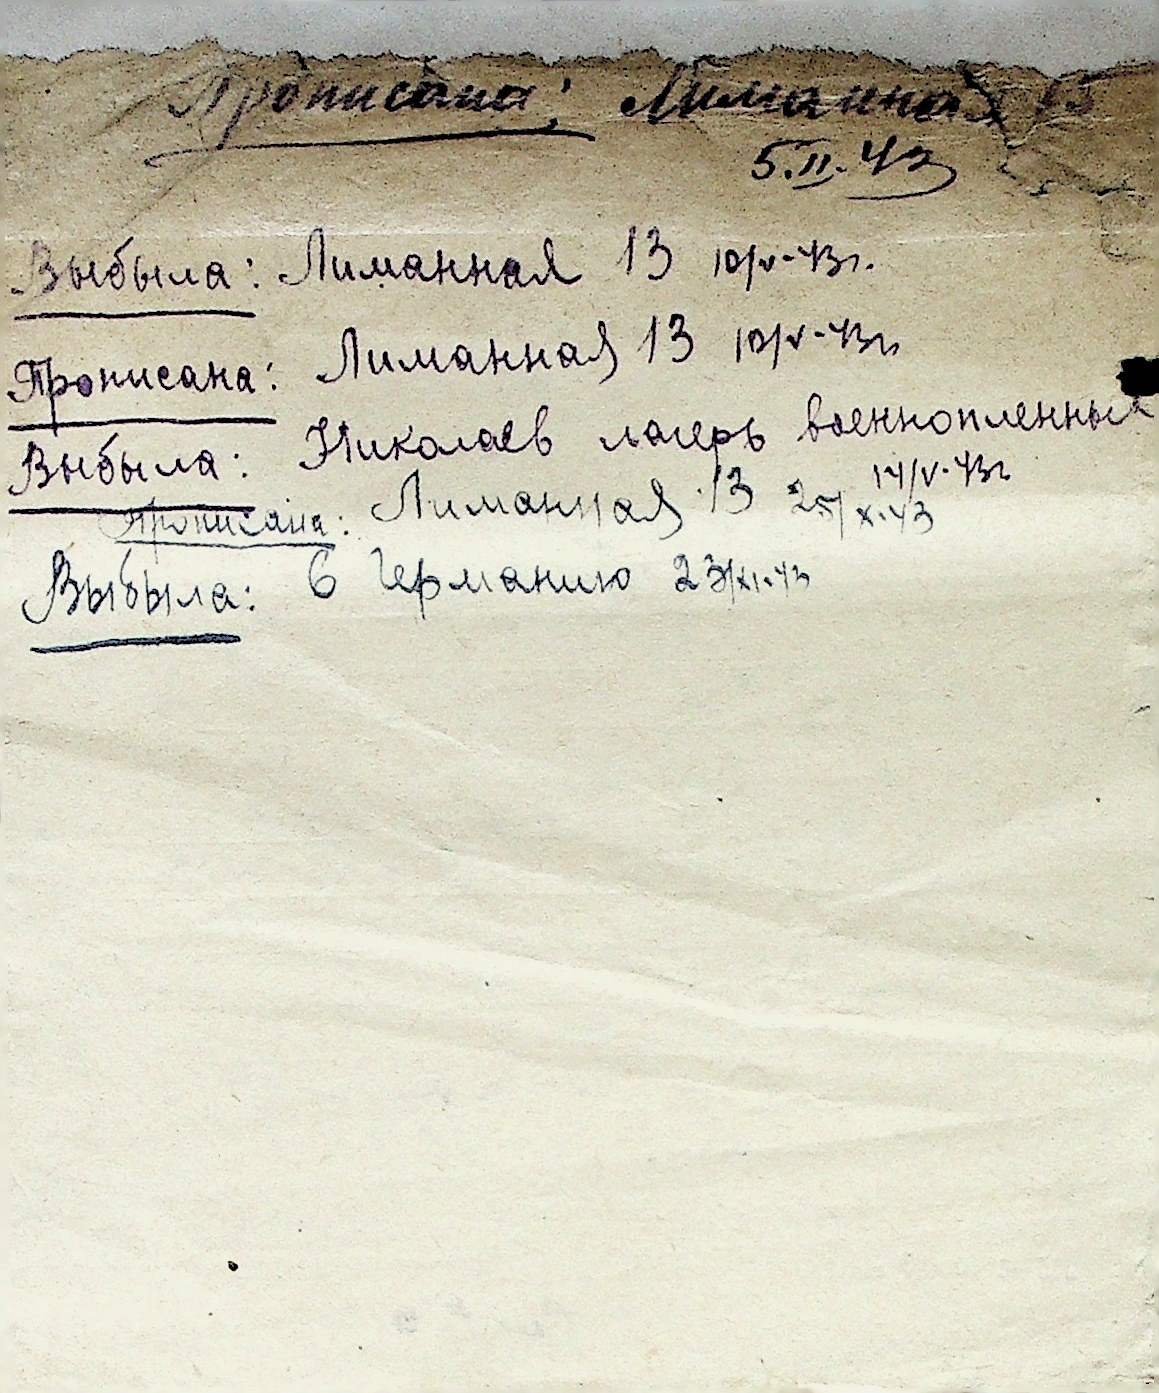 Прописана: Лиманная 13
5.II.43
Выбыла: Лиманная 13 10/V-43г.
Прописана: Лиманная 13 10/V-43г.
Выбыла: Николаев лагерь военнопленных
14/V-43г
Прописана: Лиманная 13 25/X-43
Выбыла: в Германию 23/XI-43